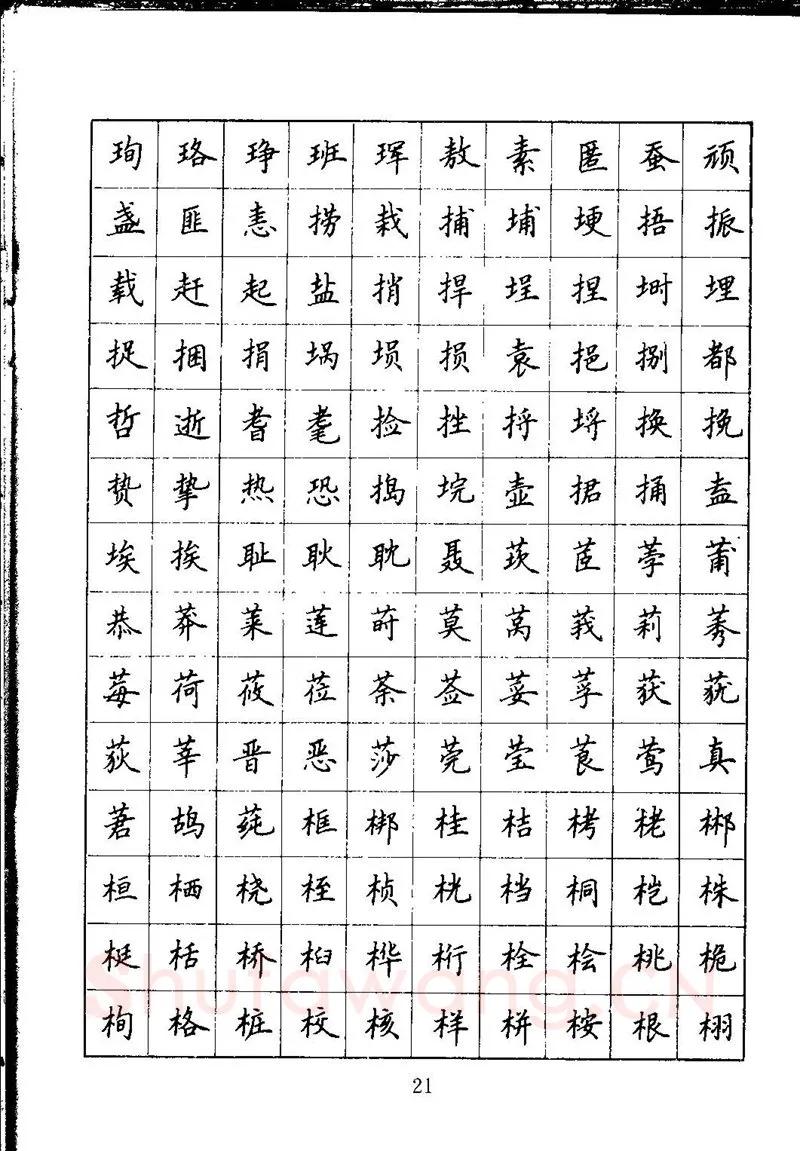 珣珞琤班珲敖素匿蚕顽
盏匪恚捞栽捕埔埂捂振
载赶起盐捎捍埕捏埘埋
捉捆捐埚埙损袁挹捌都
哲逝耆耄捡挫捋埒换挽
贽挚热恐捣垸壶捃捅盍
埃挨耻耿耽聂莰茝荸莆
恭莽莱莲莳莫莴莪莉莠
莓荷莜莅荼莶荽莩获莸
荻莘晋恶莎莞莹莨莺真
莙鸪莼框梆桂桔栲栳郴
桓栖桡桎桢桄档桐桤株
梃栝桥桕桦桁栓桧桃桅
栒格桩校核样栟桉根栩
21
Shufawang.CN